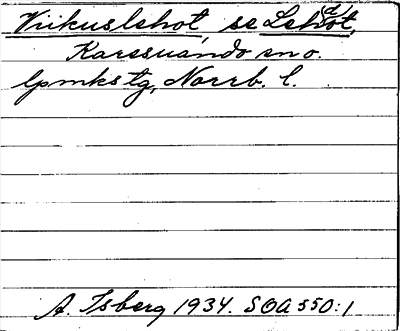 Viikuslehot, se Lehot,
Karesuando sn o.
lpmkstg, Norrb. l.
A. Isberg 1934. SOA 550:1